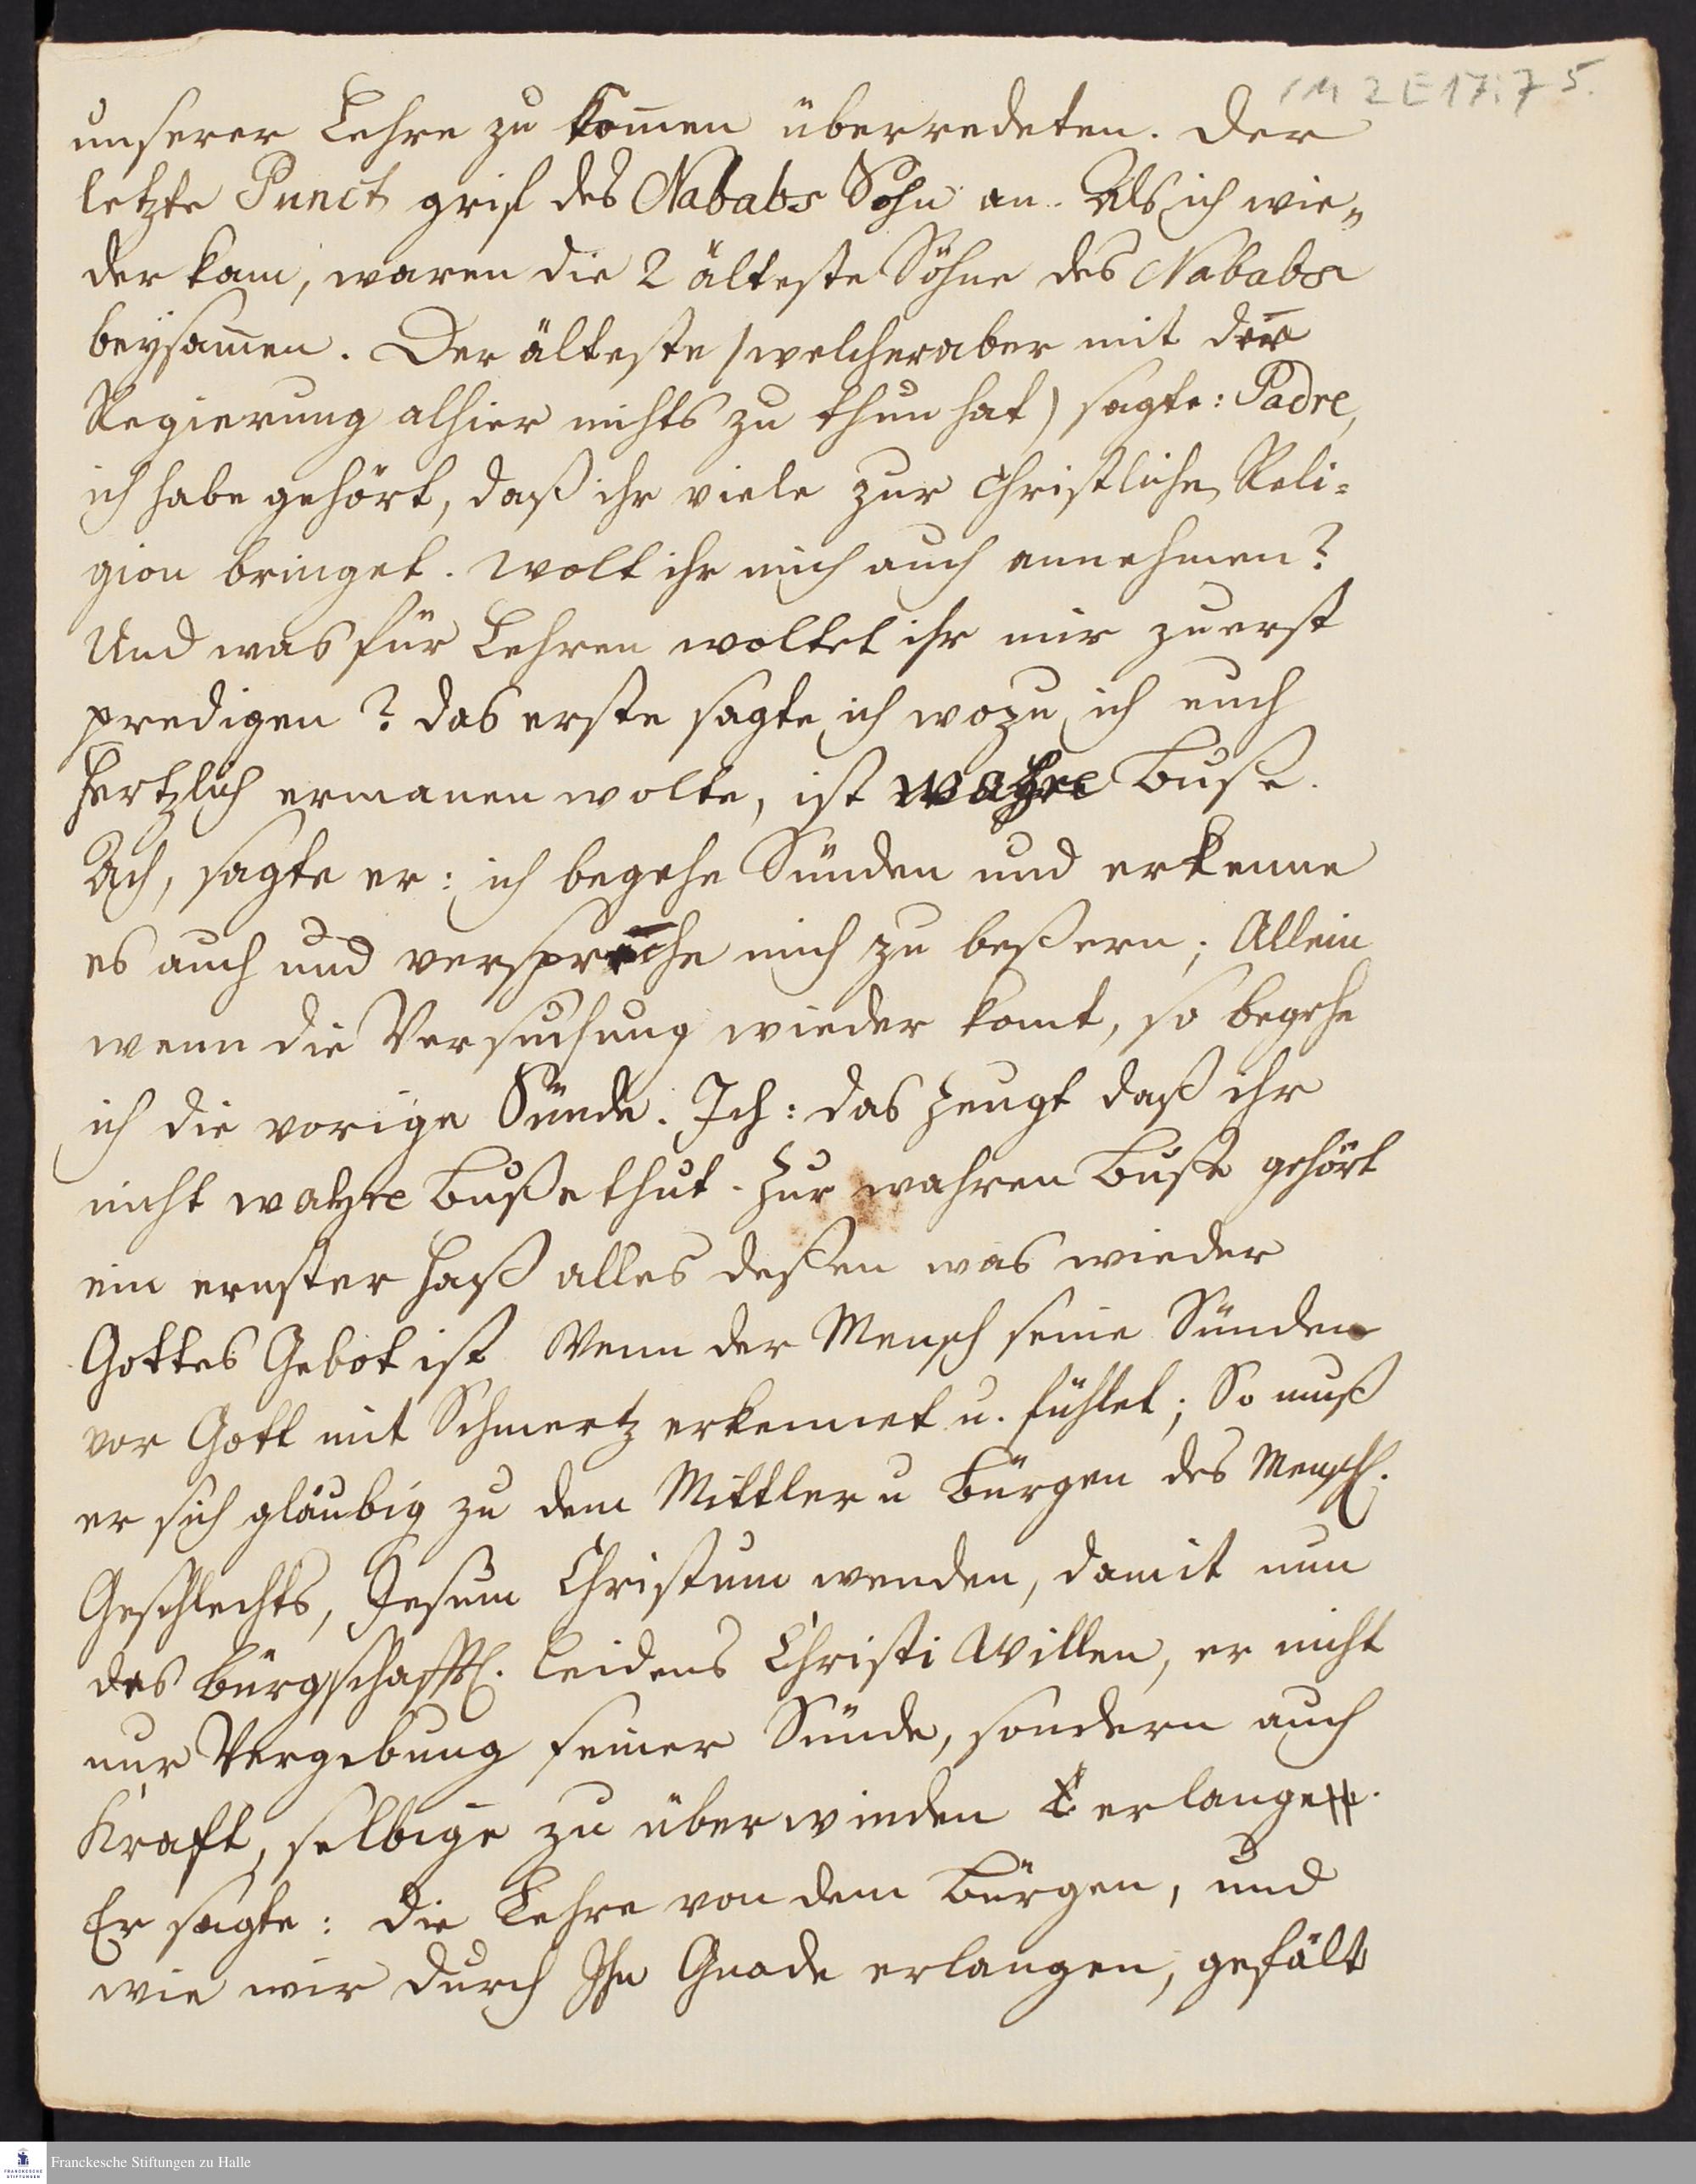 1M 2 E 17:75.
unserer Lehre zu kom̅en überredeten. Der
letzte Punct grif des Nababs Sohn an. Als ich wie„
der kam, waren die 2 älteste Söhne des Nababs
beysam̅en. Der älteste /welcher aber mit der
Regierung alhier nichts zu thun hat) sagte: Padre,
ich habe gehört, daß ihr viele zur Christlichen Reli=
gion bringet. Wolt ihr mich auch annehmen?
Und was für Lehren woltet ihr mir zuerst
predigen? Das erste sagte ich wozu ich euch
hertzlich ermanen wolte, ist wahre Buße.
Ach, sagte er: ich begehe Sünden und erkenne
es auch und verspreche mich zu beßern; Allein
wenn die Versuchung wieder komt, so begehe
ich die vorige Sünde. Ich: das zeugt daß ihr
nicht wahre Buße thut. Zur wahren Buße gehört
ein ernster Haß alles deßen was wieder
Gottes Gebot ist Wenn der Mensch seine Sünden
vor Gott mit Schmertz erkennet u. fühlet; So muß
er sich gläubig zu dem Mittler u Bürgen des Menschl.
Geschlechts, Jesum Christum wenden, damit nun
des bürgschafftl. Leidens Christi Willen, er nicht
nur Vergebung seiner Sünde, sondern auch
Kraft, selbige zu überwinden erlange.
Er sagte: die Lehre von dem Bürgen, und
wie wir durch Ihn Gnade erlangen, gefält
Franckesche Stiftungen zu Halle
FRANCKESCHE
STIFTUNGEN